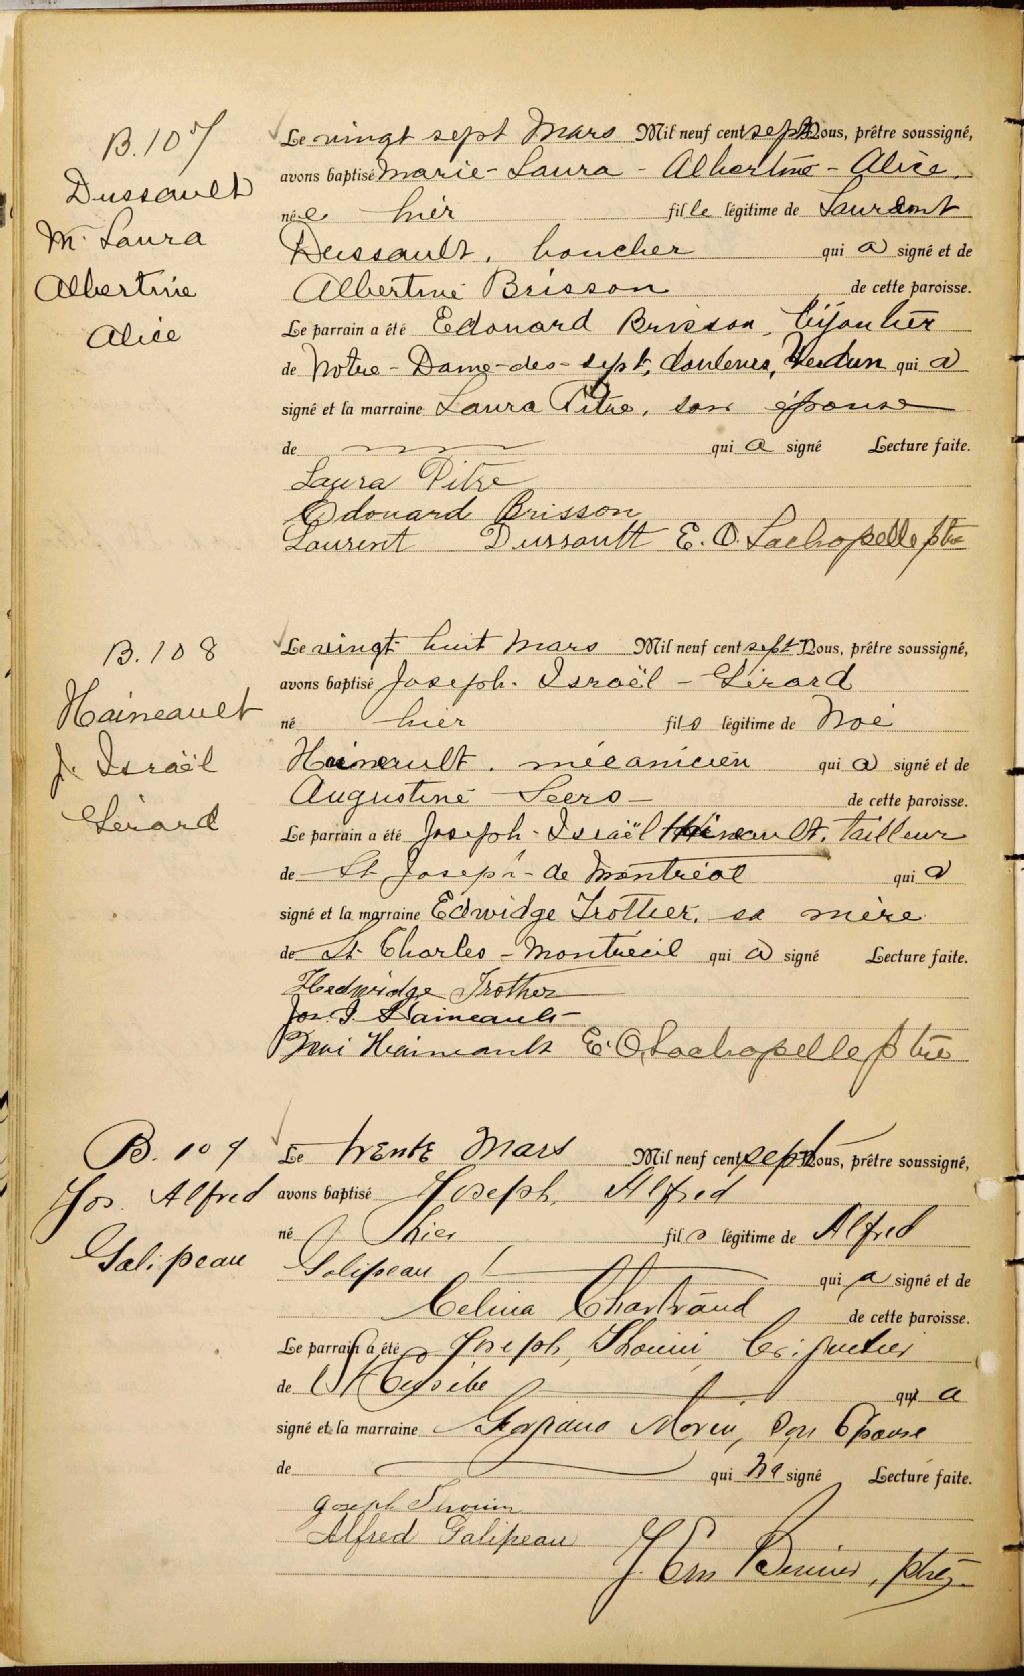 B.107
Dussault
M. Laura
Albertine
Alice
Le vingt sept Mars Mil neuf cent sept Nous, prêtre soussigné,
avons baptisé Marie-Laura-Albertine-Alice.
née hier fille légitime de Laurent
Dussault, boucher qui a signé et de
Albertine Brisson de cette paroisse.
Le parrain a été Edouard Brisson, bijoutier
de Notre-Dame-des-sept, douleurs, Verdun qui a
signé et la marraine Laura Pitre, son épouse
de qui a signé Lecture faite.
Laura Pitre
Edouard Brisson
Laurent Dussault E. O. Lachapelle ptre
B.108
Haineault
J. Israël
Gérard
Le vingt huit Mars Mil neuf cent sept Nous, prêtre soussigné,
avons baptisé Joseph-Israël-Gérard
né hier fils légitime de Noé
Haineault, mécanicien qui a signé et de
Augustine Seers de cette paroisse.
Le parrain a été Joseph-Israël Haineault, tailleur
de St Joseph-de Montréal qui a
signé et la marraine Edwidge Trottier, sa mère
de St Charles-Montréal qui a signé Lecture faite.
Hedwidge Trother
Jos. I. Haineault
Haineault E. O. Lachapelle ptre
B. 109
Jos. Alfred
Galipeau
Le trente Mars Mil neuf cent sept Nous, prêtre soussigné,
avons baptisé Joseph, Alfred
né hier, fils légitime de Alfred
Galipeau qui a signé et de
Celina Chartrand de cette paroisse.
Le parrain a été Joseph, Thouin,
de St Eusèbe qui a
signé et la marraine Morin, son Epouse
de qui na signé Lecture faite.
Joseph Thouin
Alfred Galipeau
J. Ern Bernier, ptre.